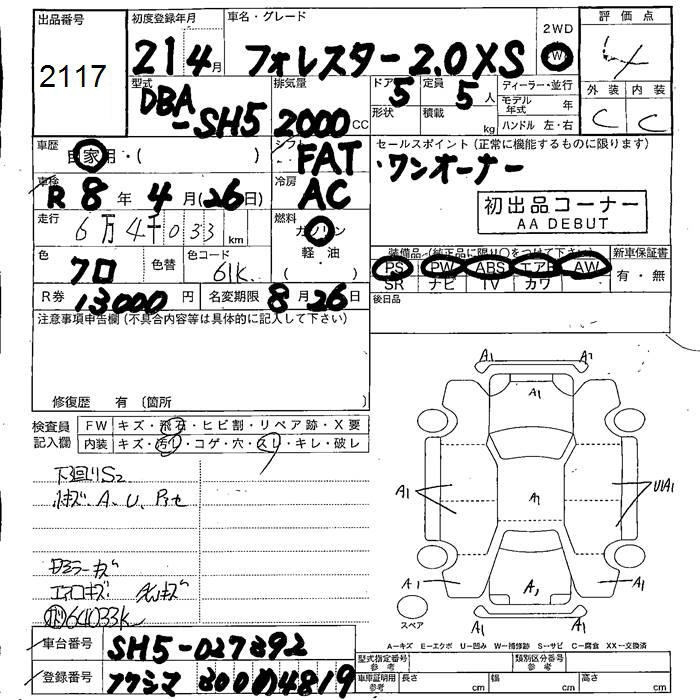 出品番号 初度登録年月 車名・グレード 2WD 評価点
2117 21 4月 フォレスター 2.0XS 4
型式 排気量 ドア 定員 ディーラー・並行 外装 内装
DBA-SH5 2000CC 5 5人 モデル年式 年 C C
形状 積載 kg ハンドル 左・右
車歴 自家用・( ) シフト FAT セールスポイント(正常に機能するものに限ります)
車検 R8年4月(26日) 冷房 AC ・ワンオーナー
初出品コーナー
AA DEBUT
走行 6万4千033km 燃料 ガソリン
軽・油
( )
色 クロ 色替 色コード 61K
装備品(純正品に限り○をつけて下さい) 新車保証書
PS PW ABS エアB AW 有・無
SR ナビ TV カワ
R券 13000円 名変期限 8月26日 後日品
注意事項申告欄(不具合内容等は具体的に記入して下さい)
修復歴 有 (箇所 )
検査員記入欄 FW キズ・飛石・ヒビ割・リペア跡・X要
内装 キズ・汚レ・コゲ・穴・スレ・キレ・破レ
下廻りS2
A1 A1
A1
A1 A1 U1A1
A1 A1 A1
スペア
64033K
A-キズ E-エクボ U-凹み W-補修跡 S-サビ C-腐食 XX-交換済
車台番号 SH5-027392
登録番号 フクシマ 300 め 4819
型式指定番号 参考 類別区分番号 参考
車庫証明用 参考 長さ cm 幅 cm 高さ cm